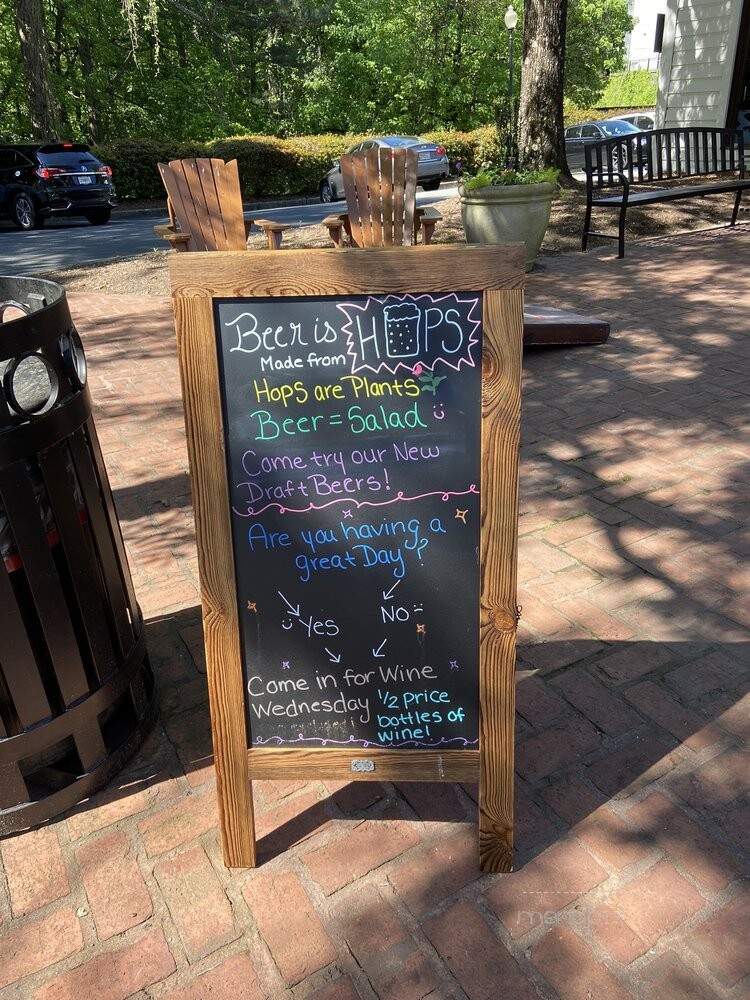 Beer is HOPS
Made from
Hops are Plants
Beer = Salad
Come try our New
Draft Beers!
Are you having a
great Day?
Yes No
Come in for Wine
Wednesday 1/2 price
bottles of
wine!